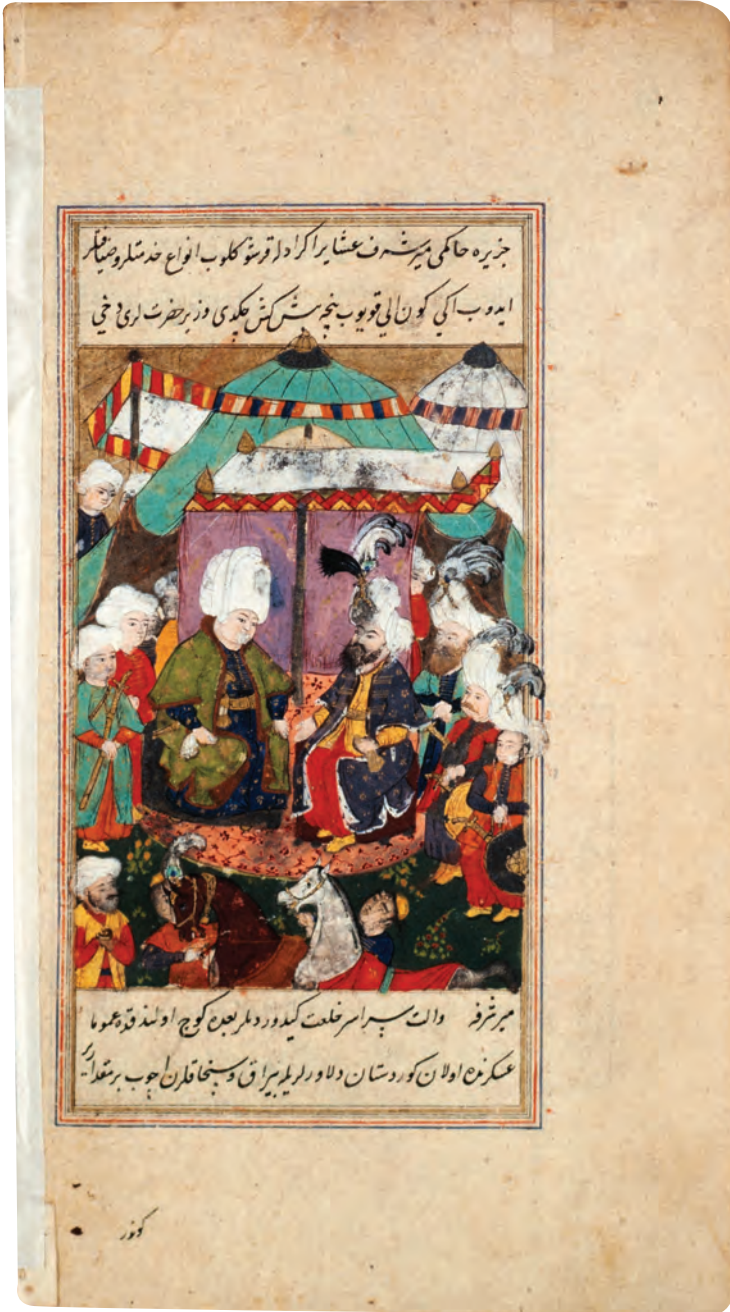 جزیره حاکمی میر شرف عشایر اکراد له قرشو کلوب انواع خدمتلر و ضیافتلر
ایدوب اکی کون الی قویوب نیچه پیشکش چکدی وزیر حضرتلری دخی
میر شرفه والت سراسر خلعت کیدوردیلر بعده کوچ اولندقده عموما
عسکرنده اولان کوردستان دلاورلریله یراق و سنجاقلرن اچوب بر مقدار یر